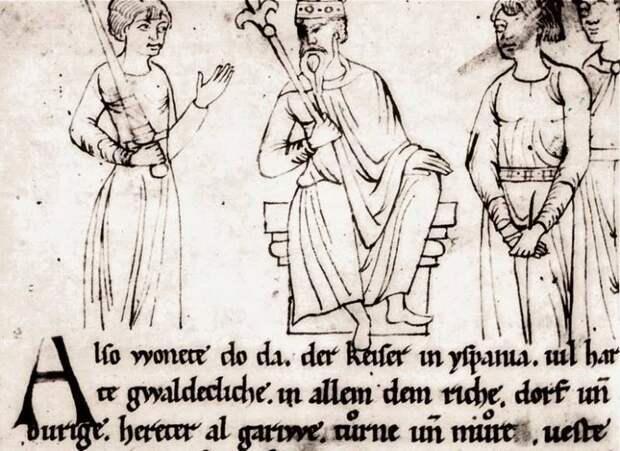 Also wonete do da. der keiser in yspania. uil har
te gwaldecliche. in allem dem riche. dorf un̄
burige. hereter al gariwe. tůrne un̄ můre. ueste